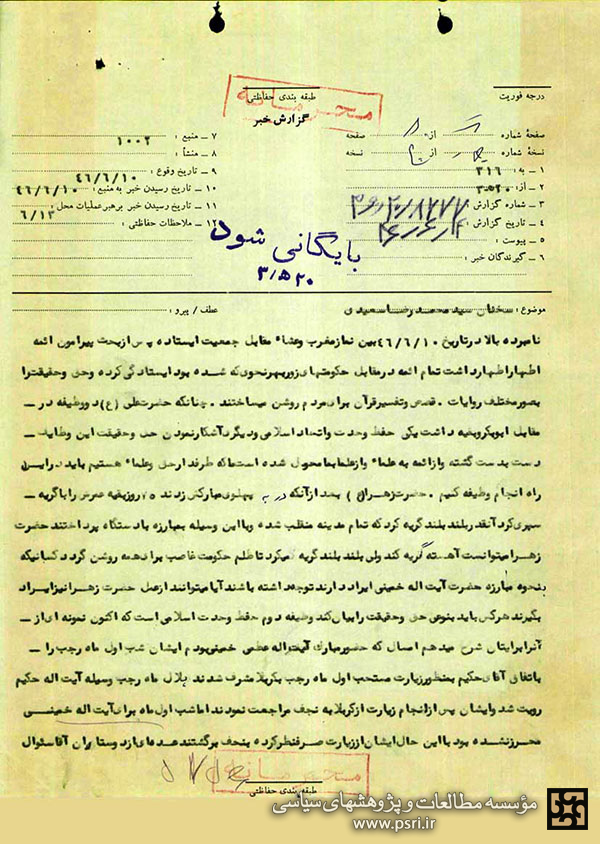 محرمانه
درجه فوریت
طبقه بندی حفاظتی
گزارش خبر
صفحهٔ شماره از صفحه
نسخهٔ شماره از نسخه
۱ ـ به : ۳۱۶
۲ ـ از : ۳۵۲۰
۳ ـ شماره گزارش :
۴ ـ تاریخ گزارش :
۵ ـ پیوست :
۶ ـ گیرندگان خبر :
۷ ـ منبع : ۱۰۰۲
۸ ـ منشأ :
۹ ـ تاریخ وقوع : ۴۶/۶/۱۰
۱۰ ـ تاریخ رسیدن خبر به منبع : ۴۶/۶/۱۰
۱۱ ـ تاریخ رسیدن خبر برهبر عملیات محل : ۶/۱۳
۱۲ ـ ملاحظات حفاظتی :
بایگانی شود
۳/۵۲۰
موضوع : سخنان سید محمد رضا سعیدی عطف / پیرو :
نامبرده بالا در تاریخ ۴۶/۶/۱۰ بین نماز مغرب وعشاء مقابل جمعیت ایستاده پس از بحث پیرامون ائمه
اطهار اظهار داشت تمام ائمه در مقابل حکومتهای زور بهر نحوی که شده بود ایستادگی کرده وحق وحقیقت را
بصور مختلف روایات . قصص وتفسیر قرآن برای مردم روشن میساختند . چنانکه حضرت علی (ع) دو وظیفه در ــ
مقابل ابوبکر وبقیه داشت یکی حفظ وحدت واتحاد اسلامی ودیگری آشکار نمودن حق وحقیقت این وظایف ــ
دست بدست گشته واز ائمه به علماء واز علما بما محول شده است ما که طرفدار حق وعلماء هستیم باید در این
راه انجام وظیفه کنیم . حضرت زهرا (ع) بعد از آنکه در به پهلوی مبارکش زدند ۷۵ روز بقیه عمرش را با گریه ــ
سپری کرد آنقدر بلند بلند گریه کرد که تمام مدینه منقلب شده وبا این وسیله بمبارزه با دستگاه پرداختند حضرت
زهرا میتوانست آهسته گریه کند ولی بلند بلند گریه میکرد تا ظلم حکومت غاصب برای همه روشن گردد کسانیکه
بنحوه مبارزه حضرت آیت اله خمینی ایراد دارند توجه داشته باشند آیا میتوانند از عمل حضرت زهرا نیز ایراد
بگیرند هرکس باید بنوعی حق وحقیقت را بیان کند وظیفه دوم حفظ وحدت اسلامی است که اکنون نمونه ای از ــ
آنرا برایتان شرح میدهم امسال که حضور مبارک آیت اله عظمی خمینی بودم ایشان شب اول ماه رجب را ــ
باتفاق آقای حکیم بمنظور زیارت مستحب اول ماه رجب بکربلا مشرف شدند هلال ماه رجب وسیله آیت اله حکیم
رویت شد وایشان پس از انجام زیارت از کربلا به نجف مراجعت نمودند اما شب اول ماه برای آیت اله خمینی
محرز نشده بود با این حال ایشان از زیارت صرفنظر کرده بنجف برگشتند عده ای از دوستداران آقا سئوال
محرمانه
طبقه بندی حفاظتی
مؤسسه مطالعات و پژوهشهای سیاسی
www.psri.ir